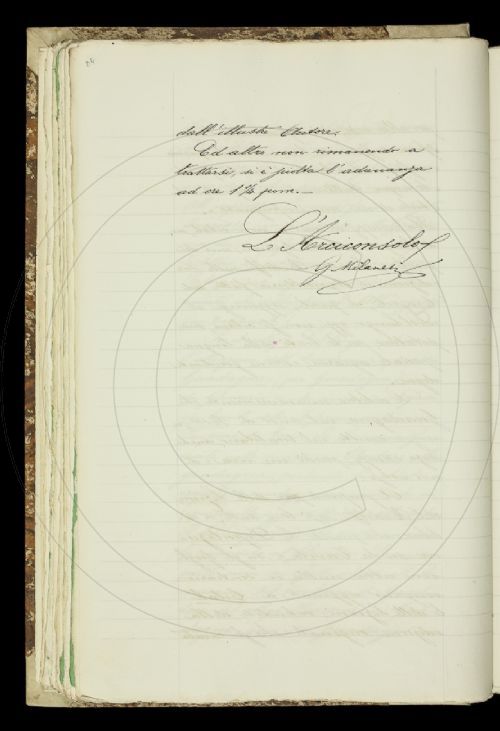 dall'illustre Autore.
Ed altro non rimanendo a
trattarsi, si è sciolta l'adunanza
ad ore 1 ¼ pom. —
L'Arciconsolo
G. Milanesi